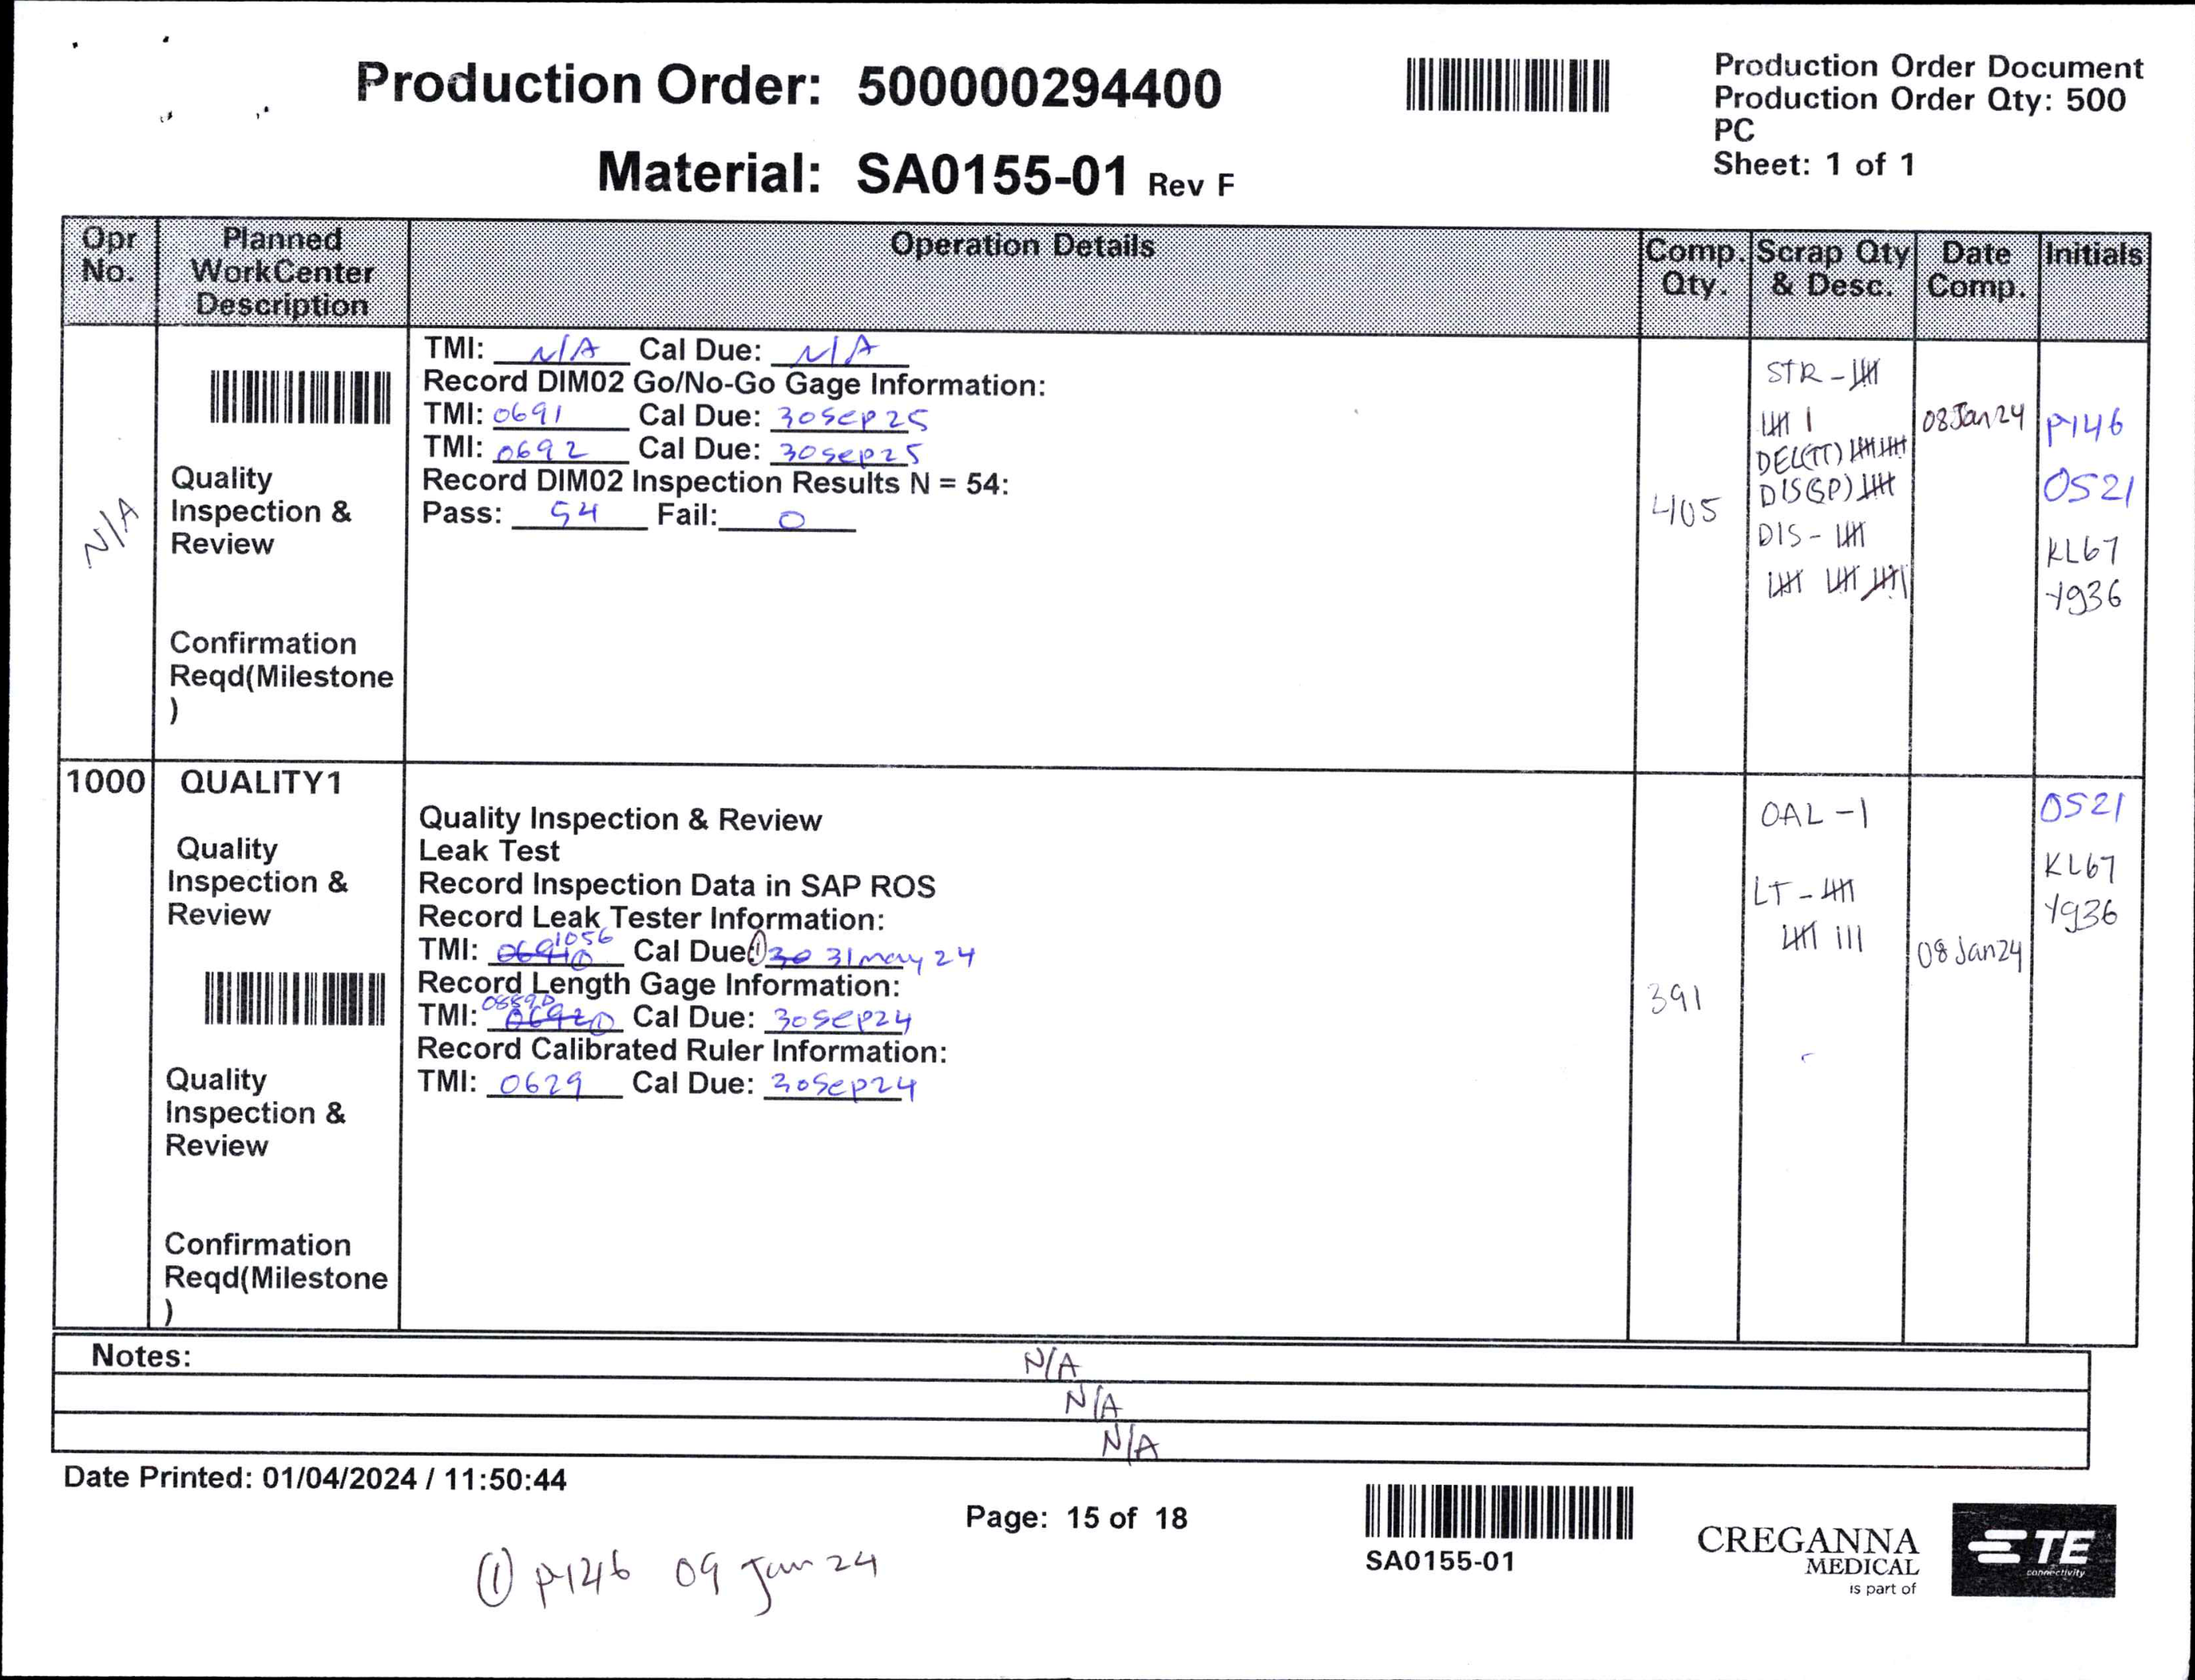 Production Order: 500000294400
Production Order Document
Production Order Qty: 500
PC
Sheet: 1 of 1
Material: SA0155-01 Rev F
Opr No.
Planned WorkCenter Description
Operation Details
Comp. Qty.
Scrap Qty & Desc.
Date Comp.
Initials
N/A
Quality
Inspection &
Review
Confirmation
Reqd(Milestone
)
TMI: N/A Cal Due: N/A
Record DIM02 Go/No-Go Gage Information:
TMI: 0691 Cal Due: 30Sep25
TMI: 0692 Cal Due: 30Sep25
Record DIM02 Inspection Results N = 54:
Pass: 54 Fail: 0
405
STR -
DEL(TT)
DIS(SP)
DIS -
08Jan24
P146
OS21
KL67
Yg36
1000
QUALITY1
Quality
Inspection &
Review
Quality
Inspection &
Review
Confirmation
Reqd(Milestone
)
Quality Inspection & Review
Leak Test
Record Inspection Data in SAP ROS
Record Leak Tester Information:
TMI: 1056 Cal Due: 31may 24
Record Length Gage Information:
TMI: Cal Due: 30Sep24
Record Calibrated Ruler Information:
TMI: 0629 Cal Due: 30Sep24
391
OAL -1
LT -
08Jan24
OS21
KL67
Yg36
Notes:
N/A
N/A
N/A
Date Printed: 01/04/2024 / 11:50:44
Page: 15 of 18
SA0155-01
CREGANNA
MEDICAL
is part of
TE
connectivity
① P146 09 Jan 24